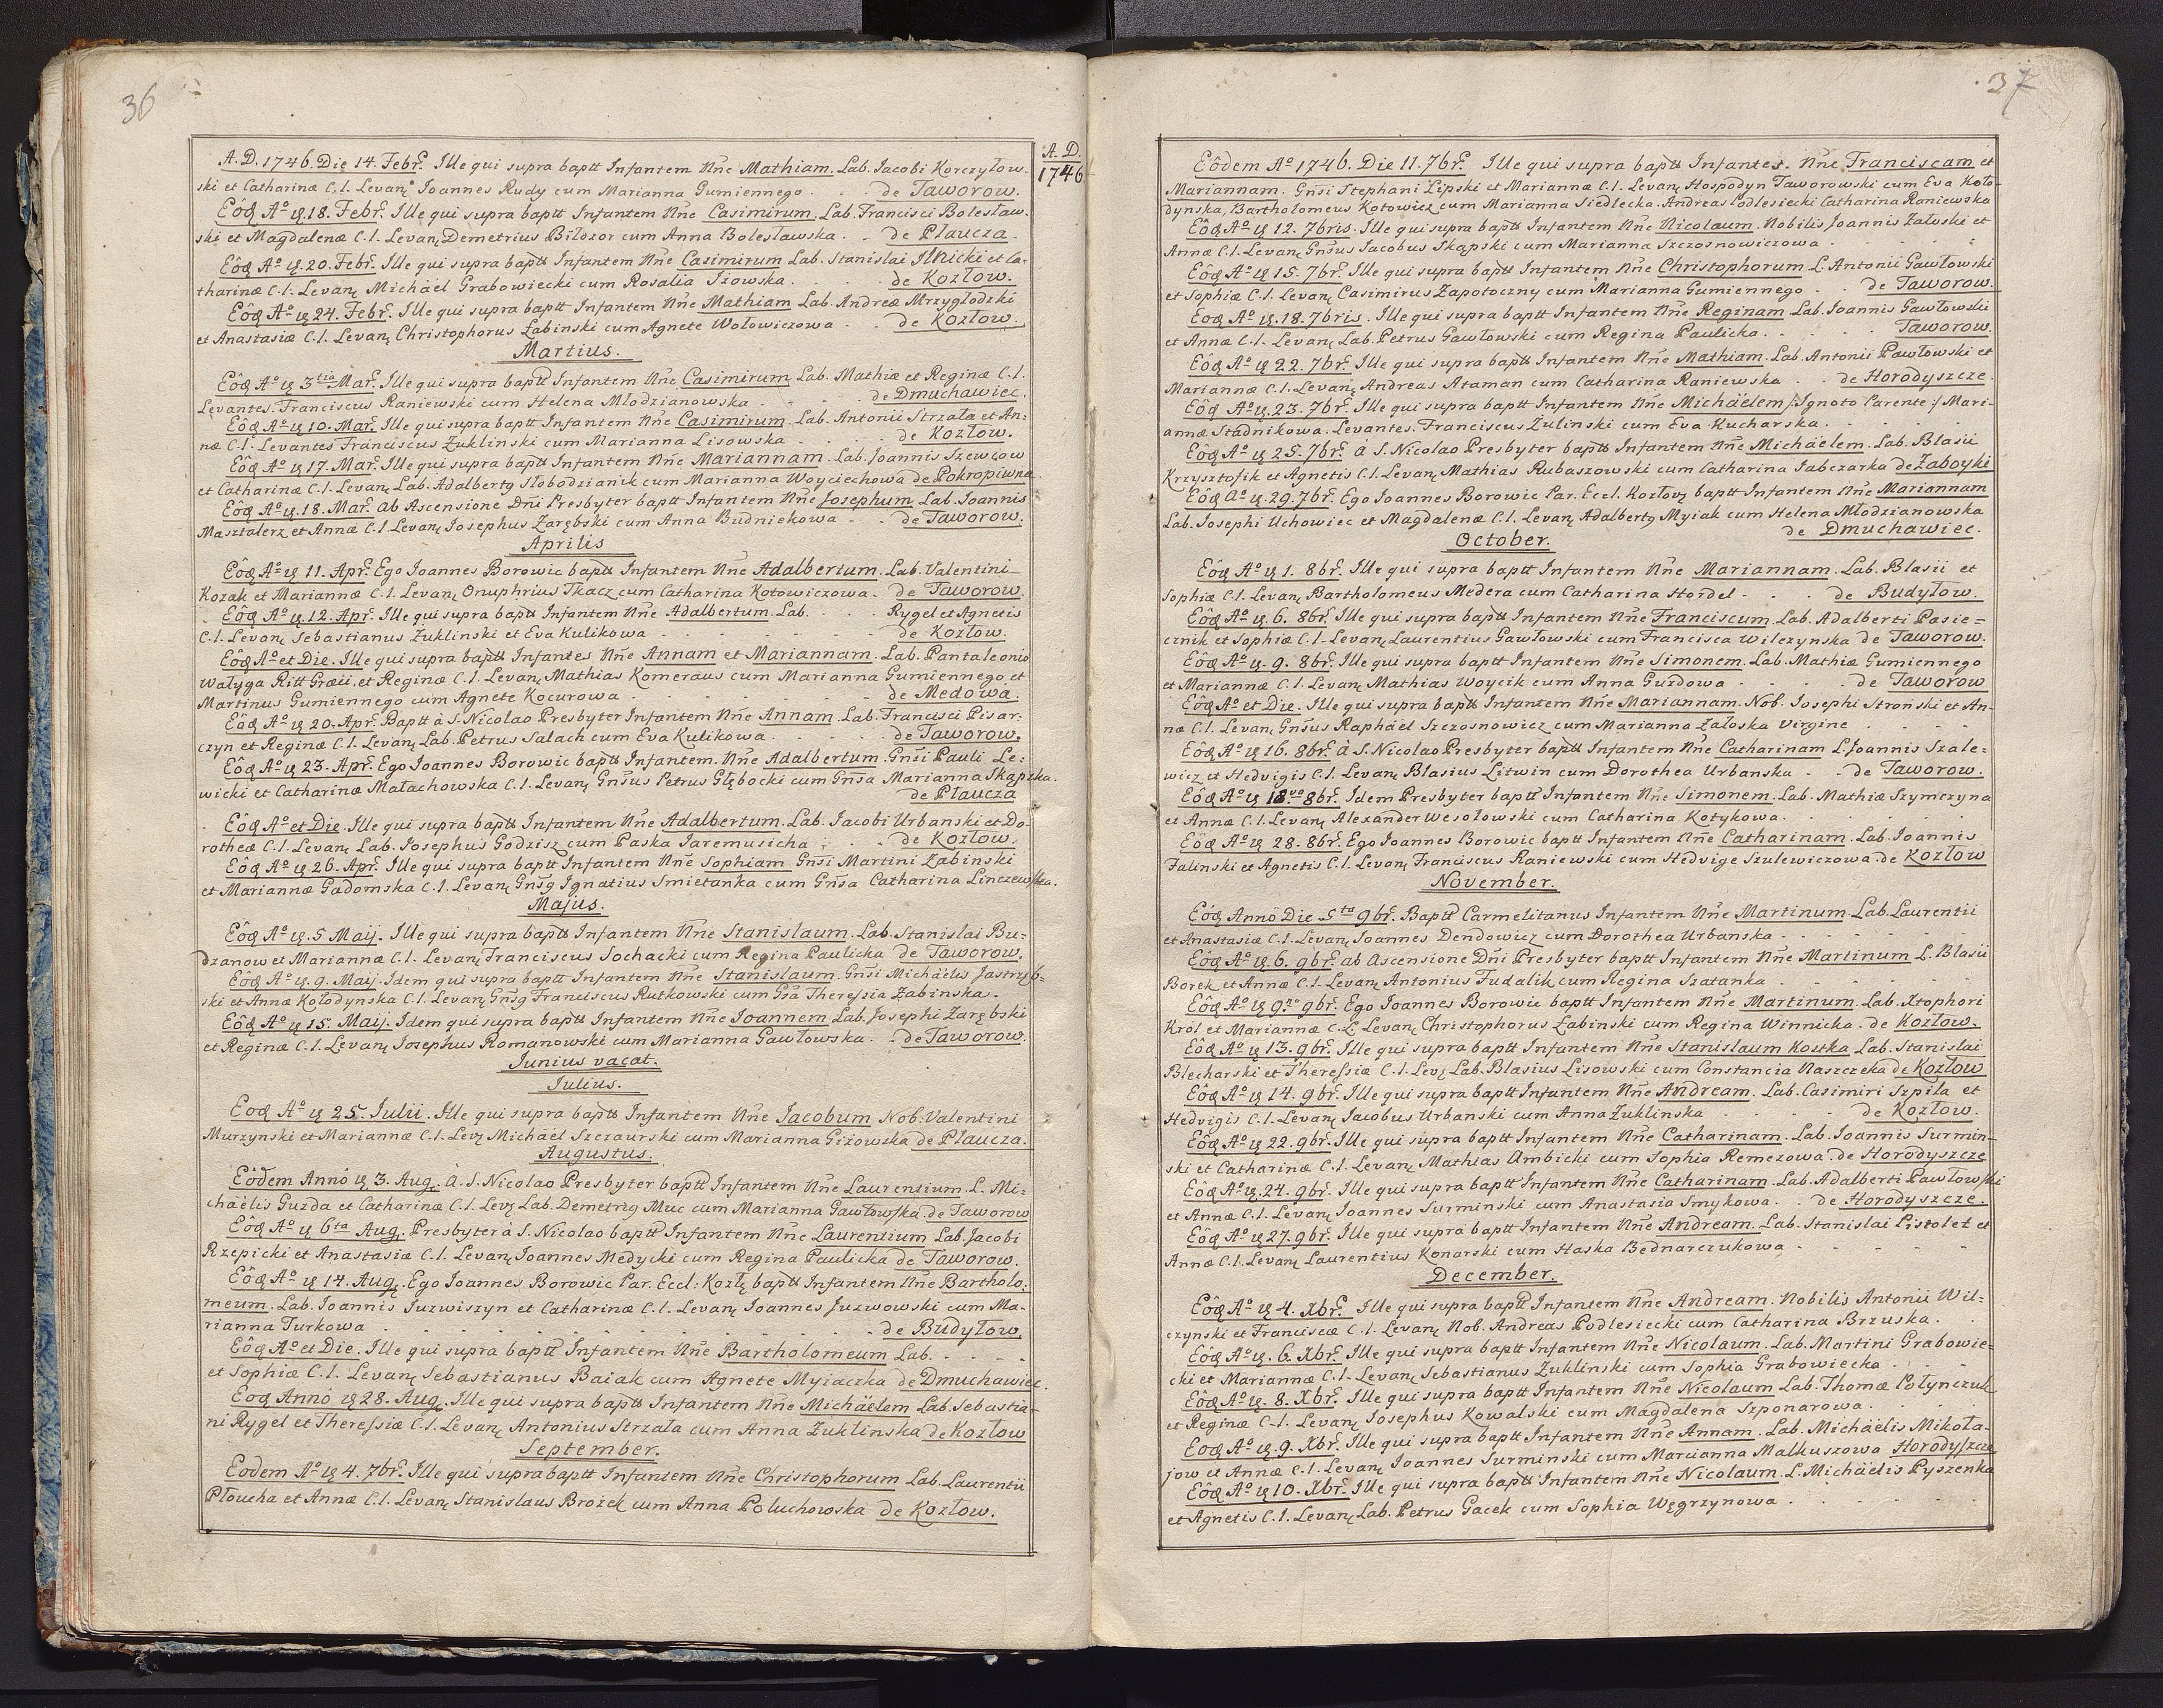 36
A. D. 1746. Die 14. Febr. Ille qui supra baptt Infantem Nne Mathiam. Lab. Jacobi Korczylow-
ski et Catharinæ C. l. Levan Joannes Rudy cum Marianna Gumiennego. de Taworow.
A. D. 1746
Eôđ Aº 18. Febr. Ille qui supra baptt Infantem Nne Casimirum. Lab. Francisci Bolesław-
ski et Magdalenæ C. l. Levan Demetrius Biłozor cum Anna Bolesławska. de Płaucza.
Eôđ Aº 20. Febr. Ille qui supra baptt Infantem Nne Casimirum Lab. Stanislai Ilnicki et Ca-
tharinæ C. l. Levan Michäel Grabowiecki cum Rosalia Izowska. de Kozłow.
Eôđ Aº 24. Febr. Ille qui supra baptt Infantem Nne Mathiam Lab. Andreæ Mrzyglodzki
et Anastasiæ C. l. Levan Christophorus Żabinski cum Agnete Wołowiczowa de Kozłow.
Martius.
Eôđ Aº 3tia Mar. Ille qui supra baptt Infantem Nne Casimirum Lab. Mathiæ et Reginæ C. l.
Levantes. Franciscus Raniewski cum Helena Młodzianowska de Dmuchawiec.
Eôđ Aº 10. Mar. Ille qui supra baptt Infantem Nne Casimirum. Lab. Antonii Strzała et An:
næ C. l. Levantes Franciscus Żuklinski cum Marianna Lisowska de Kozłow.
Eôđ Aº 17. Mar. Ille qui supra baptt Infantem Nne Mariannam. Lab. Joannis Szewcow
et Catharinæ C. l. Levan Lab. Adalbertg Słobodzianik cum Marianna Woyciechowa de Pokropiwna
Eôđ Aº 18. Mar. ab Ascensione Dni Presbyter baptt Infantem Nne Josephum Lab. Joannis
Masztalerz et Annæ C. l. Levan Josephus Zarębski cum Anna Budnickowa de Taworow.
Aprilis
Eôđ Aº 11. Apr. Ego Joannes Borowic baptt Infantem Nne Adalbertum. Lab. Valentini
Kozak et Mariannæ C. l. Levan Onuphrius Tkacz cum Catharina Kotowiczowa. de Taworow
Eôđ Aº 12. Apr. Ille qui supra baptt Infantem Nne Adalbertum. Lab. Rygel et Agnetis
C. l. Levan Sebastianus Żuklinski et Eva Kulikowa de Kozłow.
Eôđ Aº et Die. Ille qui supra baptt Infantes Nne Annam et Mariannam. Lab. Pantaleonis
Wałyga Ritt Græci, et Reginæ C. l. Levan Mathias Komeraus cum Marianna Gumiennego, et
Martinus Gumiennego cum Agnete Kocurowa de Medowa.
Eôđ Aº 20. Apr. Baptt à S. Nicolao Presbyter Infantem Nne Annam. Lab. Francisci Pisar:
czyn et Reginæ C. l. Levan Lab. Petrus Salach cum Eva Kulikowa de Taworow.
Eôđ Aº 23. Apr. Ego Joannes Borowic baptt Infantem. Nne Adalbertum. Gnsi Pauli Le:
wicki et Catharinæ Małachowska C. l. Levan Gnsus Petrus Głębocki cum Gnsa Marianna Skąpska.
de Płaucza
Eôđ Aº et Die. Ille qui supra baptt Infantem Nne Adalbertum. Lab. Jacobi Urbanski et Do-
rotheæ C. l. Levan Lab. Josephus Godzisz cum Paska Jaremusicha de Kozłow.
Eôđ Aº 26. Apr. Ille qui supra baptt Infantem Nne Sophiam Gnsi Martini Żabinski
et Mariannæ Gadomska C. l. Levan Gnsg Ignatius Smietanka cum Gnsa Catharina Linczewska.
Majus.
Eôđ Aº 5 Maij. Ille qui supra baptt Infantem Nne Stanislaum. Lab. Stanislai Bu:
dzanow et Mariannæ C. l. Levan Franciscus Sochacki cum Regina Paulicka de Taworow.
Eôđ Aº 9. Maij. Idem qui supra baptt Infantem Nne Stanislaum. Gnsi Michäelis Jastrzęb-
ski et Annæ Kołodynska C. l. Levan Gnsg Franciscus Rutkowski cum Gsa Theressia Żabinska.
Eôđ Aº 15. Maij. Idem qui supra baptt Infantem Nne Joannem Lab. Josephi Zarębski
et Reginæ C. l. Levan Josephus Romanowski cum Marianna Gawłowska. de Taworow.
Junius vacat.
Julius.
Eôđ Aº 25. Julii. Ille qui supra baptt Infantem Nne Jacobum Nob. Valentini
Murzynski et Mariannæ C. l. Lev Michäel Szczaurski cum Marianna Giżowska de Płaucza.
Augustus.
Eôdem Annô 3. Aug. À. S. Nicolao Presbyter baptt Infantem Nne Laurentium. L. Mi:
chäelis Guzda et Catharinæ C. l. Lev Lab. Demetrig Muc cum Marianna Gawłowska de Taworow
Eôđ Aº 6ta Aug. Presbyter à S. Nicolao baptt Infantem Nne Laurentium Lab. Jacobi
Rzepicki et Anastasiæ C. l. Levan Joannes Medycki cum Regina Paulicka de Taworow.
Eôđ Aº 14. Aug. Ego Joannes Borowic Par. Eccl: Kozł baptt Infantem Nne Bartholo:
meum. Lab. Joannis Juzwiszyn et Catharinæ C. l. Levan Joannes Juzwowski cum Ma-
rianna Turkowa de Budyłow.
Eôđ Aº et Die. Ille qui supra baptt Infantem Nne Bartholomeum Lab.
et Sophiæ C. l. Levan Sebastianus Baiak cum Agnete Myiaczka de Dmuchawiec.
Eôđ Annô 28. Aug. Ille qui supra baptt Infantem Nne Michäelem Lab. Sebastia-
ni Rygel et Theressiæ C. l. Levan Antonius Strzała cum Anna Żuklinska de Kozłow
September.
Eodem Aº 4. 7br. Ille qui supra baptt Infantem Nne Christophorum Lab. Laurentii
Płoucha et Annæ C. l. Levan Stanislaus Brożek cum Anna Połuchowska de Kozłow.
37
Eôdem Aº 1746. Die 11. 7br. Ille qui supra baptt Infantes. Nne Franciscam et
Mariannam. Gnsi Stephani Lipski et Mariannæ C. l. Levan Hospodyn Taworowski cum Eva Koło-
dynska, Bartholomeus Kotowicz cum Marianna Siedlecka. Andreas Podlesiecki Catharina Raniewska
Eôđ Aº 12. 7bris. Ille qui supra baptt Infantem Nne Nicolaum. Nobilis Joannis Załoski et
Annæ C. l. Levan Gnsus Jacobus Skąpski cum Marianna Szczosnowiczowa
Eôđ Aº 15. 7br. Ille qui supra baptt Infantem Nne Christophorum L. Antonii Gawłowski
et Sophiæ C. l. Levan Casimirus Zapotoczny cum Marianna Gumiennego de Taworow.
Eôđ Aº 18. 7bris. Ille qui supra baptt Infantem Nne Reginam Lab. Joannis Gawłowski
et Annæ C. l. Levan Lab. Petrus Gawłowski cum Regina Paulicka. Taworow.
Eôđ Aº 22. 7br. Ille qui supra baptt Infantem Nne Mathiam. Lab. Antonii Pawłowski et
Mariannæ C. l. Levan Andreas Ataman cum Catharina Raniewska de Horodyszcze.
Eôđ Aº 23. 7br. Ille qui supra baptt Infantem Nne Michäelem /: Ignoto Parente :/ Mari-
annæ Stadnikowa. Levantes. Franciscus Żulinski cum Eva Kucharska.
Eôđ Aº 25. 7br. à S. Nicolao Presbyter baptt Infantem Nne Michäelem. Lab. Blasii
Krzysztofik et Agnetis C. l. Levan Mathias Rubaszowski cum Catharina Jabczarka de Zaboyki
Eôđ Aº 29. 7br. Ego Joannes Borowic Par. Eccl. Kozłov baptt Infantem Nne Mariannam
Lab. Josephi Uchowiec et Magdalenæ C. l. Levan Adalbertg Myiak cum Helena Młodzianowska
de Dmuchawiec.
October.
Eôđ Aº 1. 8br. Ille qui supra baptt Infantem Nne Mariannam. Lab. Blasii et
Sophiæ C. l. Levan Bartholomeus Medera cum Catharina Hordel de Budyłow.
Eôđ Aº 6. 8br. Ille qui supra baptt Infantem Nne Franciscum Lab. Adalberti Pasie=
cznik et Sophiæ C. l. Levan Laurentius Gawłowski cum Francisca Wilczynska de Taworow.
Eôđ Aº 9. 8br. Ille qui supra baptt Infantem Nne Simonem. Lab. Mathiæ Gumiennego
et Mariannæ C. l. Levan Mathias Woycik cum Anna Guzdowa de Taworow
Eôđ Aº et Die. Ille qui supra baptt Infantem Nne Mariannam. Nob. Josephi Stroński et An-
næ C. l. Levan Gnsus Raphäel Szczosnowicz cum Marianna Załoska Virgine
Eôđ Aº 16. 8br. À S. Nicolao Presbyter baptt Infantem Nne Catharinam L. Joannis Szale=
wicz et Hedvigis C. l. Levan Blasius Litwin cum Dorothea Urbanska de Taworow.
Eôđ Aº 18vo 8br. Idem Presbyter baptt Infantem Nne Simonem. Lab. Mathiæ Szymczyna
et Annæ C. l. Levan Alexander Wesołowski cum Catharina Kotykowa.
Eôđ Aº 28. 8br. Ego Joannes Borowic baptt Infantem Nne Catharinam. Lab. Joannis
Falinski et Agnetis C. l. Levan Franciscus Raniewski cum Hedvige Szulewiczowa de Kozłow
November.
Eôđ Annô Die 5ta 9br. Baptt Carmelitanus Infantem Nne Martinum. Lab. Laurentii
et Anastasiæ C. l. Levan Joannes Dendowicz cum Dorothea Urbanska
Eôđ Aº 6. 9br. ab Ascensione Dni Presbyter baptt Infantem Nne Martinum L. Blasii
Borek et Annæ C. l. Levan Antonius Fudalik cum Regina Szatanka
Eôđ Aº 9na 9br. Ego Joannes Borowic baptt Infantem Nne Martinum. Lab. Xtophori
Król et Mariannæ C. L. Levan Christophorus Żabinski cum Regina Winnicka. de Kozłow.
Eôđ Aº 13. 9br. Ille qui supra baptt Infantem Nne Stanislaum Kostka Lab. Stanislai
Blecharski et Theressiæ C. l. Lev Lab. Blasius Lisowski cum Constancia Naszczeka de Kozłow
Eôđ Aº 14. 9br. Ille qui supra baptt Infantem Nne Andream. Lab. Casimiri Szpila et
Hedvigis C. l. Levan Jacobus Urbanski cum Anna Żuklinska de Kozłow.
Eôđ Aº 22. 9br. Ille qui supra baptt Infantem Nne Catharinam. Lab. Joannis Surmin-
ski et Catharinæ C. l. Levan Mathias Ambicki cum Sophia Remezowa de Horodyszcze
Eôđ Aº 24. 9br. Ille qui supra baptt Infantem Nne Catharinam. Lab. Adalberti Pawłowski
et Annæ C. l. Levan Joannes Surminski cum Anastasia Smykowa. de Horodyszcze.
Eôđ Aº 27. 9br. Ille qui supra baptt Infantem Nne Andream. Lab. Stanislai Pistolet et
Annæ C. l. Levan Laurentius Konarski cum Haska Bednarczukowa
December.
Eôđ Aº 4. Xbr. Ille qui supra baptt Infantem Nne Andream. Nobilis Antonii Wil=
czynski et Franciscæ C. l. Levan Nob. Andreas Podlesiecki cum Catharina Brzuska.
Eôđ Aº 6. Xbr. Ille qui supra baptt Infantem Nne Nicolaum. Lab. Martini Grabowie=
cki et Mariannæ C. l. Levan Sebastianus Żuklinski cum Sophia Grabowiecka
Eôđ Aº 8. Xbr. Ille qui supra baptt Infantem Nne Nicolaum Lab. Thomæ Połynczuk
et Reginæ C. l. Levan Josephus Kowalski cum Magdalena Szponarowa.
Eôđ Aº 9. Xbr. Ille qui supra baptt Infantem Nne Annam. Lab. Michäelis Mikoła-
jow et Annæ C. l. Levan Joannes Surminski cum Marianna Malkuszowa Horodyszcze
Eôđ Aº 10. Xbr. Ille qui supra baptt Infantem Nne Nicolaum. L. Michäelis Pyszenka
et Agnetis C. l. Levan Lab. Petrus Gacek cum Sophia Węgrzynowa